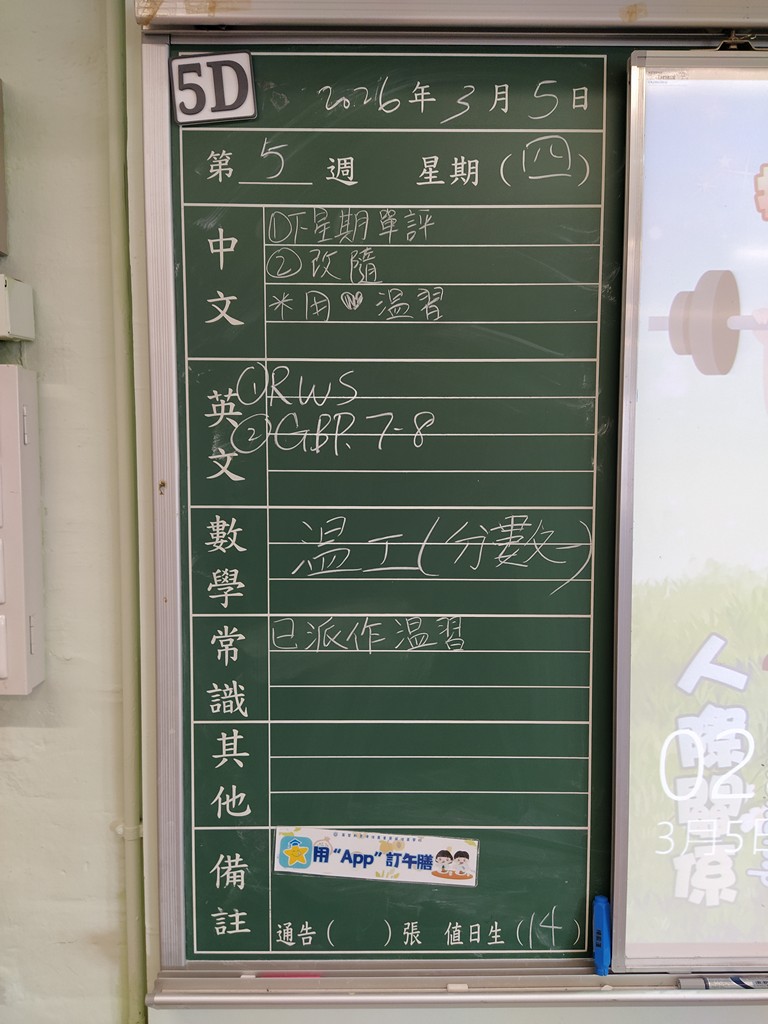 5D
2026年3月5日
第 5 週 星期(四)
中文
①下星期單評
②改隨
*用♥溫習
英文
①RWS
②GBP. 7-8
數學
溫工(分數一)
常識
已派作溫習
其他
備註
用“App”訂午膳
通告( )張 值日生(14)
人際關係
02
3月5日